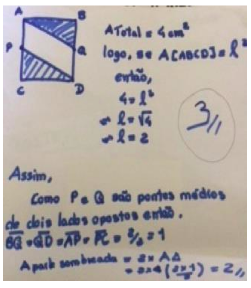 A B
P Q
C D
ATotal = 4 cm²
logo, se A[ABCD] = l²
então,
4 = l²
l = √4
l = 2
3//
Assim,
Como P e Q são pontos médios
de dois lados opostos então.
BQ = QD = AP = PC = 2/2 = 1
A park sombreada = 2x A∆
= 2x (2x1) = 2//